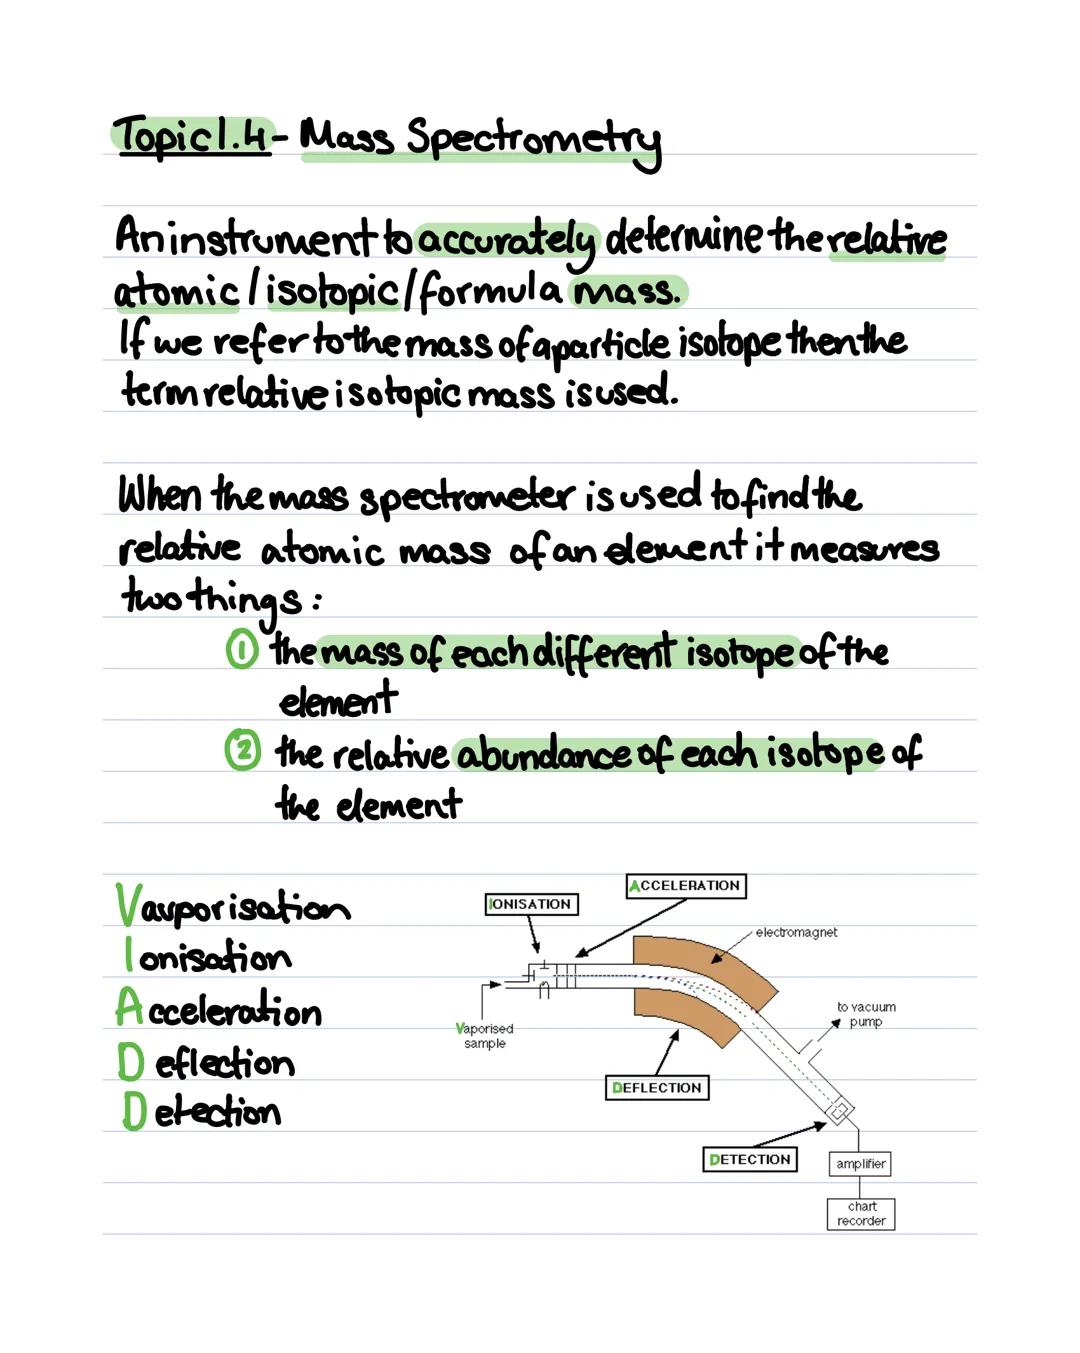 Topic 1.4 - Mass Spectrometry
An instrument to accurately determine the relative
atomic / isotopic / formula mass.
If we refer to the mass of a particle isotope then the
term relative isotopic mass is used.
When the mass spectrometer is used to find the
relative atomic mass of an element it measures
two things :
① the mass of each different isotope of the
element
② the relative abundance of each isotope of
the element
Vauporisation
Ionisation
Acceleration
Deflection
Detection
IONISATION
ACCELERATION
electromagnet
Vaporised
sample
to vacuum
pump
DEFLECTION
DETECTION
amplifier
chart
recorder